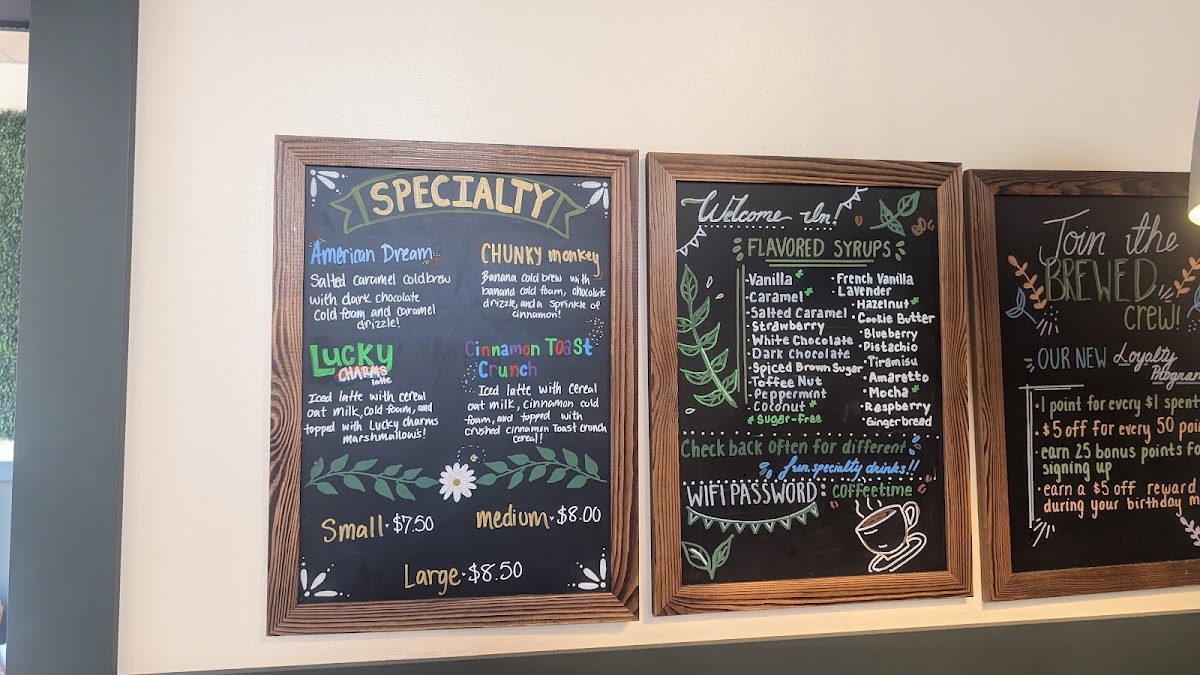 SPECIALTY
American Dream
Salted caramel coldbrew
with dark chocolate
cold foam and caramel
drizzle!
CHUNKY monkey
Banana cold brew with
banana cold foam, chocolate
drizzle, and a sprinkle of
cinnamon!
LUCKY
CHARMS
latte
Iced latte with cereal
oat milk, cold foam, and
topped with Lucky charms
marshmallows!
Cinnamon Toast
Crunch
Iced latte with cereal
oat milk, cinnamon cold
foam, and topped with
crushed cinnamon Toast crunch
cereal!
Small · $7.50
medium · $8.00
Large · $8.50
Welcome In!
FLAVORED SYRUPS
·Vanilla
·Caramel
·Salted Caramel
·Strawberry
·White Chocolate
·Dark Chocolate
·Spiced Brown Sugar
·Toffee Nut
·Peppermint
·Coconut
·French Vanilla
·Lavender
·Hazelnut
·Cookie Butter
·Blueberry
·Pistachio
·Tiramisu
·Amaretto
·Mocha
·Raspberry
·Gingerbread
* Sugar-free
Check back often for different
fun specialty drinks!!
WIFI PASSWORD: coffeetime
Join the
BREWED
crew!
·OUR NEW Loyalty
Program
·1 point for every $1 spent
·$5 off for every 50 poi
·earn 25 bonus points fo
signing up
·earn a $5 off reward
during your birthday m